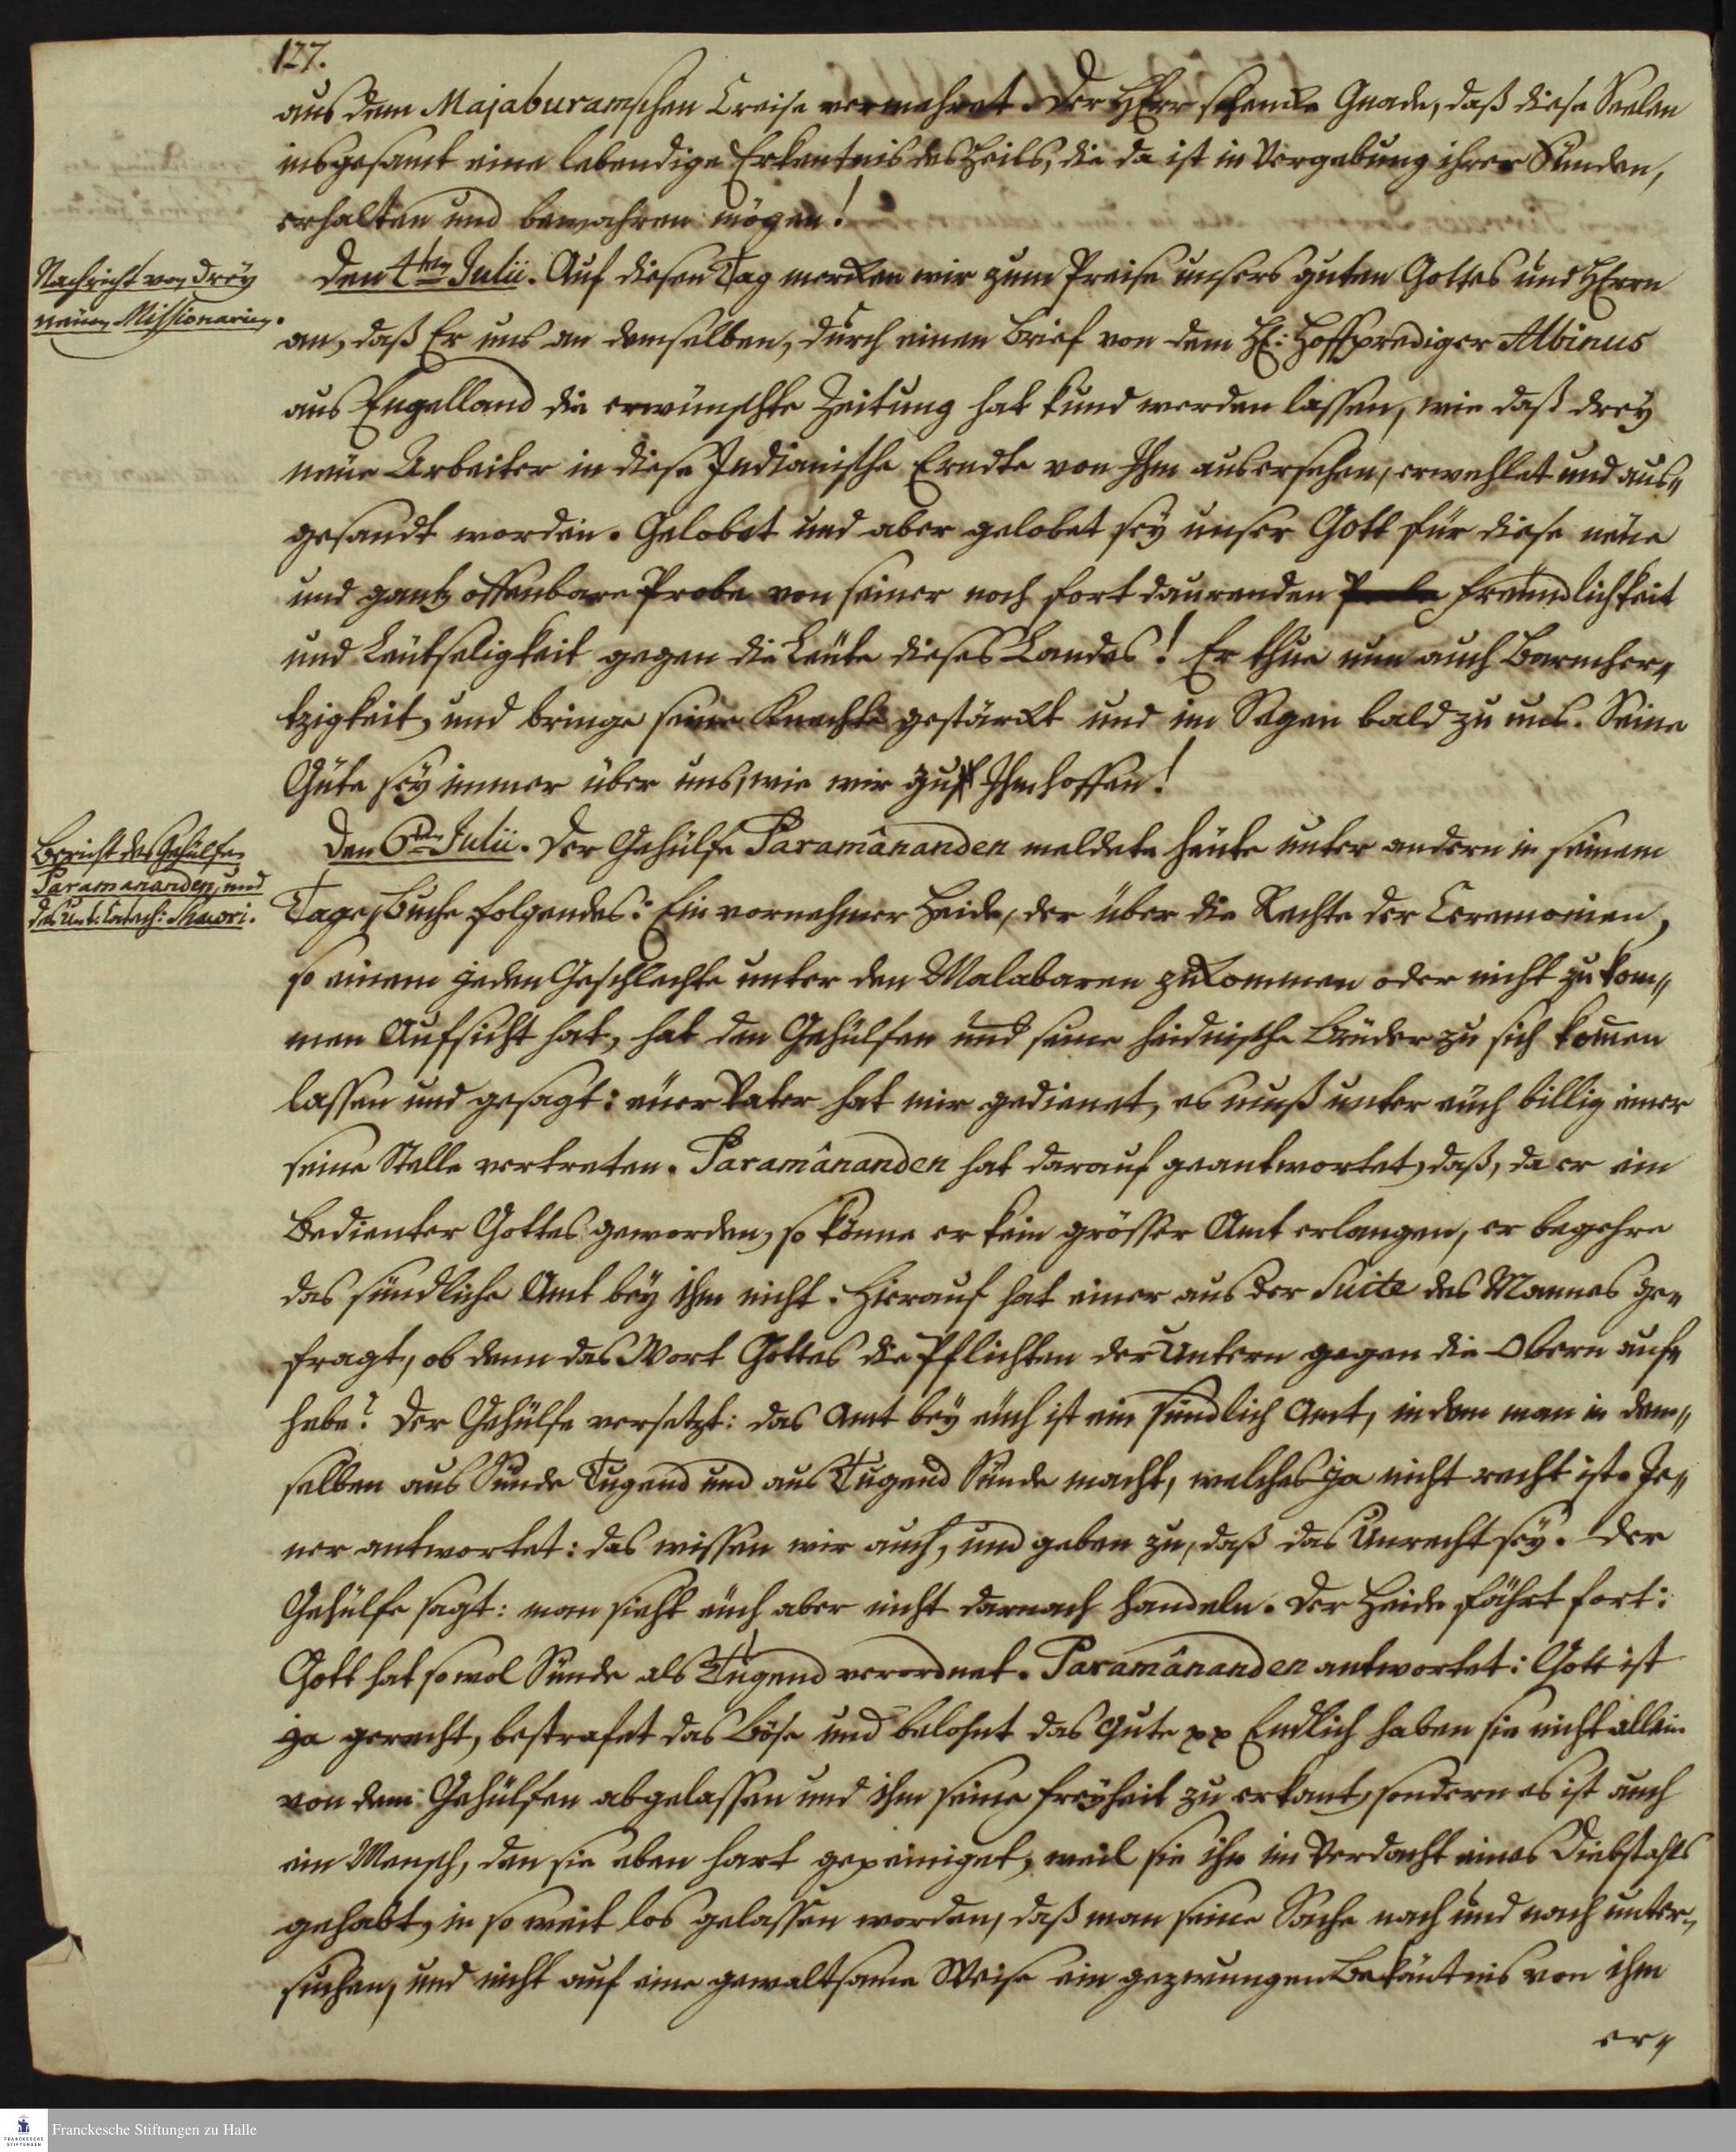 127.
aus dem Majaburamschen Creise vermehret. Der HErr schencke Gnade, daß diese Seelen
insgesamt eine lebendige Erkentnis des Heils, die da ist in Vergebung ihrer Sünden,
erhalten und bewahren mögen!
Nachricht von drey
neuen Missionarien.
Den 4ten Julii. Auf diesen Tag mercken wir zum Preise unsers guten Gottes und HErrn
an, daß Er uns an demselben, durch einen Brief von dem H: Hoffprediger Albinus
aus Engelland die erwünschte Zeitung hat kund werden lassen, wie daß drey
neüe Arbeiter in diese Indianische Erndte von Ihm ausersehen, erwehlet und aus„
gesandt worden. Gelobet und aber gelobet sey unser Gott für diese neüe
und gantz offenbare Probe von seiner noch fort daurenden Freündlichkeit
und Leütseligkeit gegen die Leüte dieses Landes! Er thue nun auch Barmher„
tzigkeit, und bringe seine Knechte gestärckt und im Segen bald zu uns. Seine
Güte sey immer über uns, wie wir auf Ihn hoffen!
Bericht des Gehülfen
Paramananden, und
des Unt: Catech: Mawri.
Den 6ten Julii. Der Gehülfe Paramânanden meldete heüte unter andern in seinem
Tage-Buche folgendes: Ein vornehmer Heide, der über die Rechte der Ceremonien,
so einem jeden Geschlechte unter den Malabaren zukommen oder nicht zu kom„
men Aufsicht hat, hat den Gehülfen und seine heidnische Brüder zu sich kom̄en
lassen und gesagt: eüer Vater hat mir gedienet, es muß unter eüch billig einer
seine Stelle vertreten. Paramânanden hat darauf geantwortet, daß, da er ein
Bedienter Gottes geworden, so könne er kein grösser Amt erlangen, er begehre
das sündliche Amt bey ihm nicht. Hierauf hat einer aus der Suite des Mannes ge„
fragt, ob denn das Wort Gottes die Pflichten der Untern gegen die Obern auf„
hebe? Der Gehülfe versetzt: das Amt bey eüch ist ein sündlich Amt, indem man in dem„
selben aus Sünde Tugend und aus Tugend Sünde macht, welches ja nicht recht ist. Je„
ner antwortet: das wissen wir auch, und geben zu, daß das Unrecht sey. Der
Gehülfe sagt: man sieht eüch aber nicht darnach handeln. Der Heide fährt fort:
Gott hat so wol Sünde als Tugend verordnet. Paramânanden antwortet: Gott ist
ja gerecht, bestrafet das Böse und belohnt das Gute pp Endlich haben sie nicht allein
von dem Gehülfen abgelassen und ihm seine Freyheit zu erkant, sondern es ist auch
ein Mensch, den sie eben hart gepeiniget, weil sie ihn im Verdacht eines Diebstahls
gehabt, in so weit los gelassen worden, daß man seine Sache nach und nach unter„
suchen, und nicht auf eine gewaltsame Weise ein gezwungen Bekäntnis von ihm
er„
Franckesche Stiftungen zu Halle